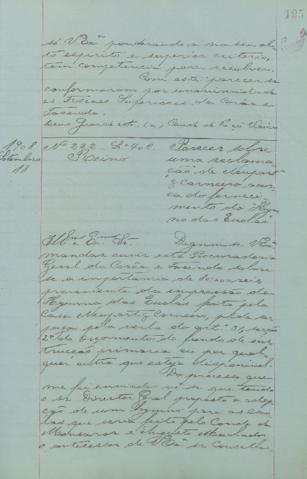 195
só V Exª ponderando, no seu al-
to espirito e superior criterio,
tem competencia para resolver.
Com este parecer se
conformaram por unanimidade
os Fiscaes Superiores da Corôa e
Fazenda.
Deus Guarde etc. (a)
1908
Setembro
18
Nº 222 - Lº 40
Reino
Parecer sobre
uma reclama-
ção de Neuparth
& Carneiro, acer-
ca do forneci-
mento do Hym-
no das Escolas
Illmo e Exmo Sr
Dignou-se V Exª
mandar ouvir esta Procuradoria
Geral da Corôa e Fazenda sobre
se a importancia de reis
proveniente da impressão do
Hymno das Escolas feita pela
Casa Neuparth & Carneiro, pode ser
paga pela verba do artº 3º, secção
2ª do Orçamento do fundo de ins-
trucção primaria ou por qual-
quer outra que esteja disponivel.
Do processo que
me foi enviado vê-se que tendo
o sr Director Geral proposto a adop-
ção de um Hymno para as esco-
las que seria feito pelo Conde de
Monsaraz e Augusto Machado,
o antecessor de V Exª sr Conselhei-